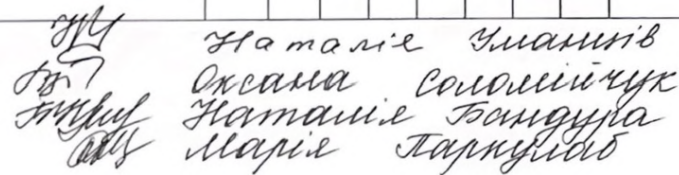 Наталіє Уманців
Оксана Соломійчук
Наталія Бандура
Марія Паркулаб